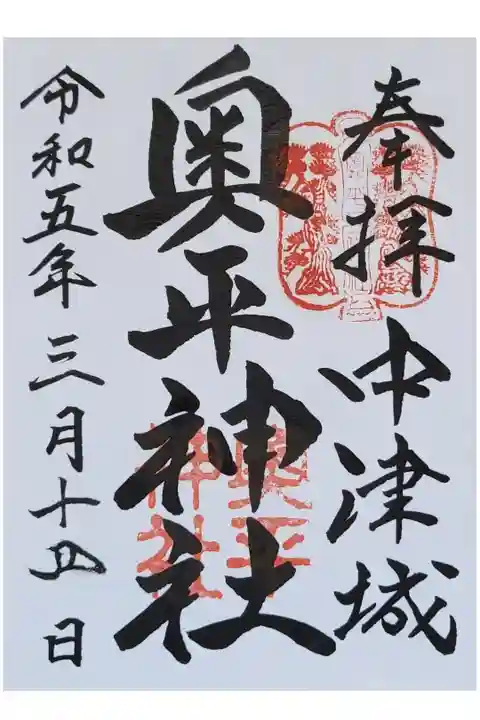 奉拝 中津城
奥平神社
奥平
神社
令和五年三月十五日